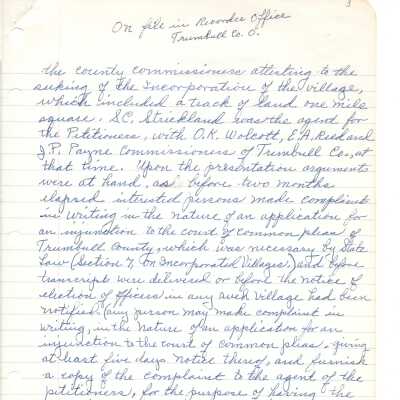 3
On file in Recorder Office
Trumbull Co. O.
the county commissioners attesting to the
seeking of the Incorporation of the village,
which included a track of land one mile
square. S.C. Strickland was the agent for
the Petitioners, with O.K. Wolcott, E.A. Reed and
J.P. Payne Commissioners of Trumbull Co., at
that time. Upon the presentation arguments
were at hand, as before two months
elapsed intrusted persons made complaint
in writing in the nature of an application for
an injunction to the court of common pleas of
Trumbull County, which was necessary by State
Law (Section 7, on Incorporated Villages.) and before
transcript were delivered or before the notice of
election of officers in any such Village had been
notified. (any person may make complaint in
writing, in the nature of an application for an
injunction to the court of common pleas, giving
at least five days notice thereof, and furnish
a copy of the complaint to the agent of the
petitioners, for the purpose of having the